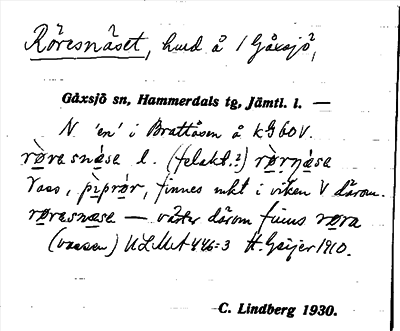 Röresnäset, hud å 1 Gåxsjö,
Gåxsjö sn, Hammerdals tg, Jämtl. l. —
N 'en' i Brattåsen å kG60V.
rø̀ra snɑ́se l. (felakt.?) rø̀rnɑ́se
Vass, pìprǿr, finnes mkt i viken V därom.
røresnæse — väster därom finns røra
(vassen) ULMA 446:3 H. Geijer 1910.
C. Lindberg 1930.